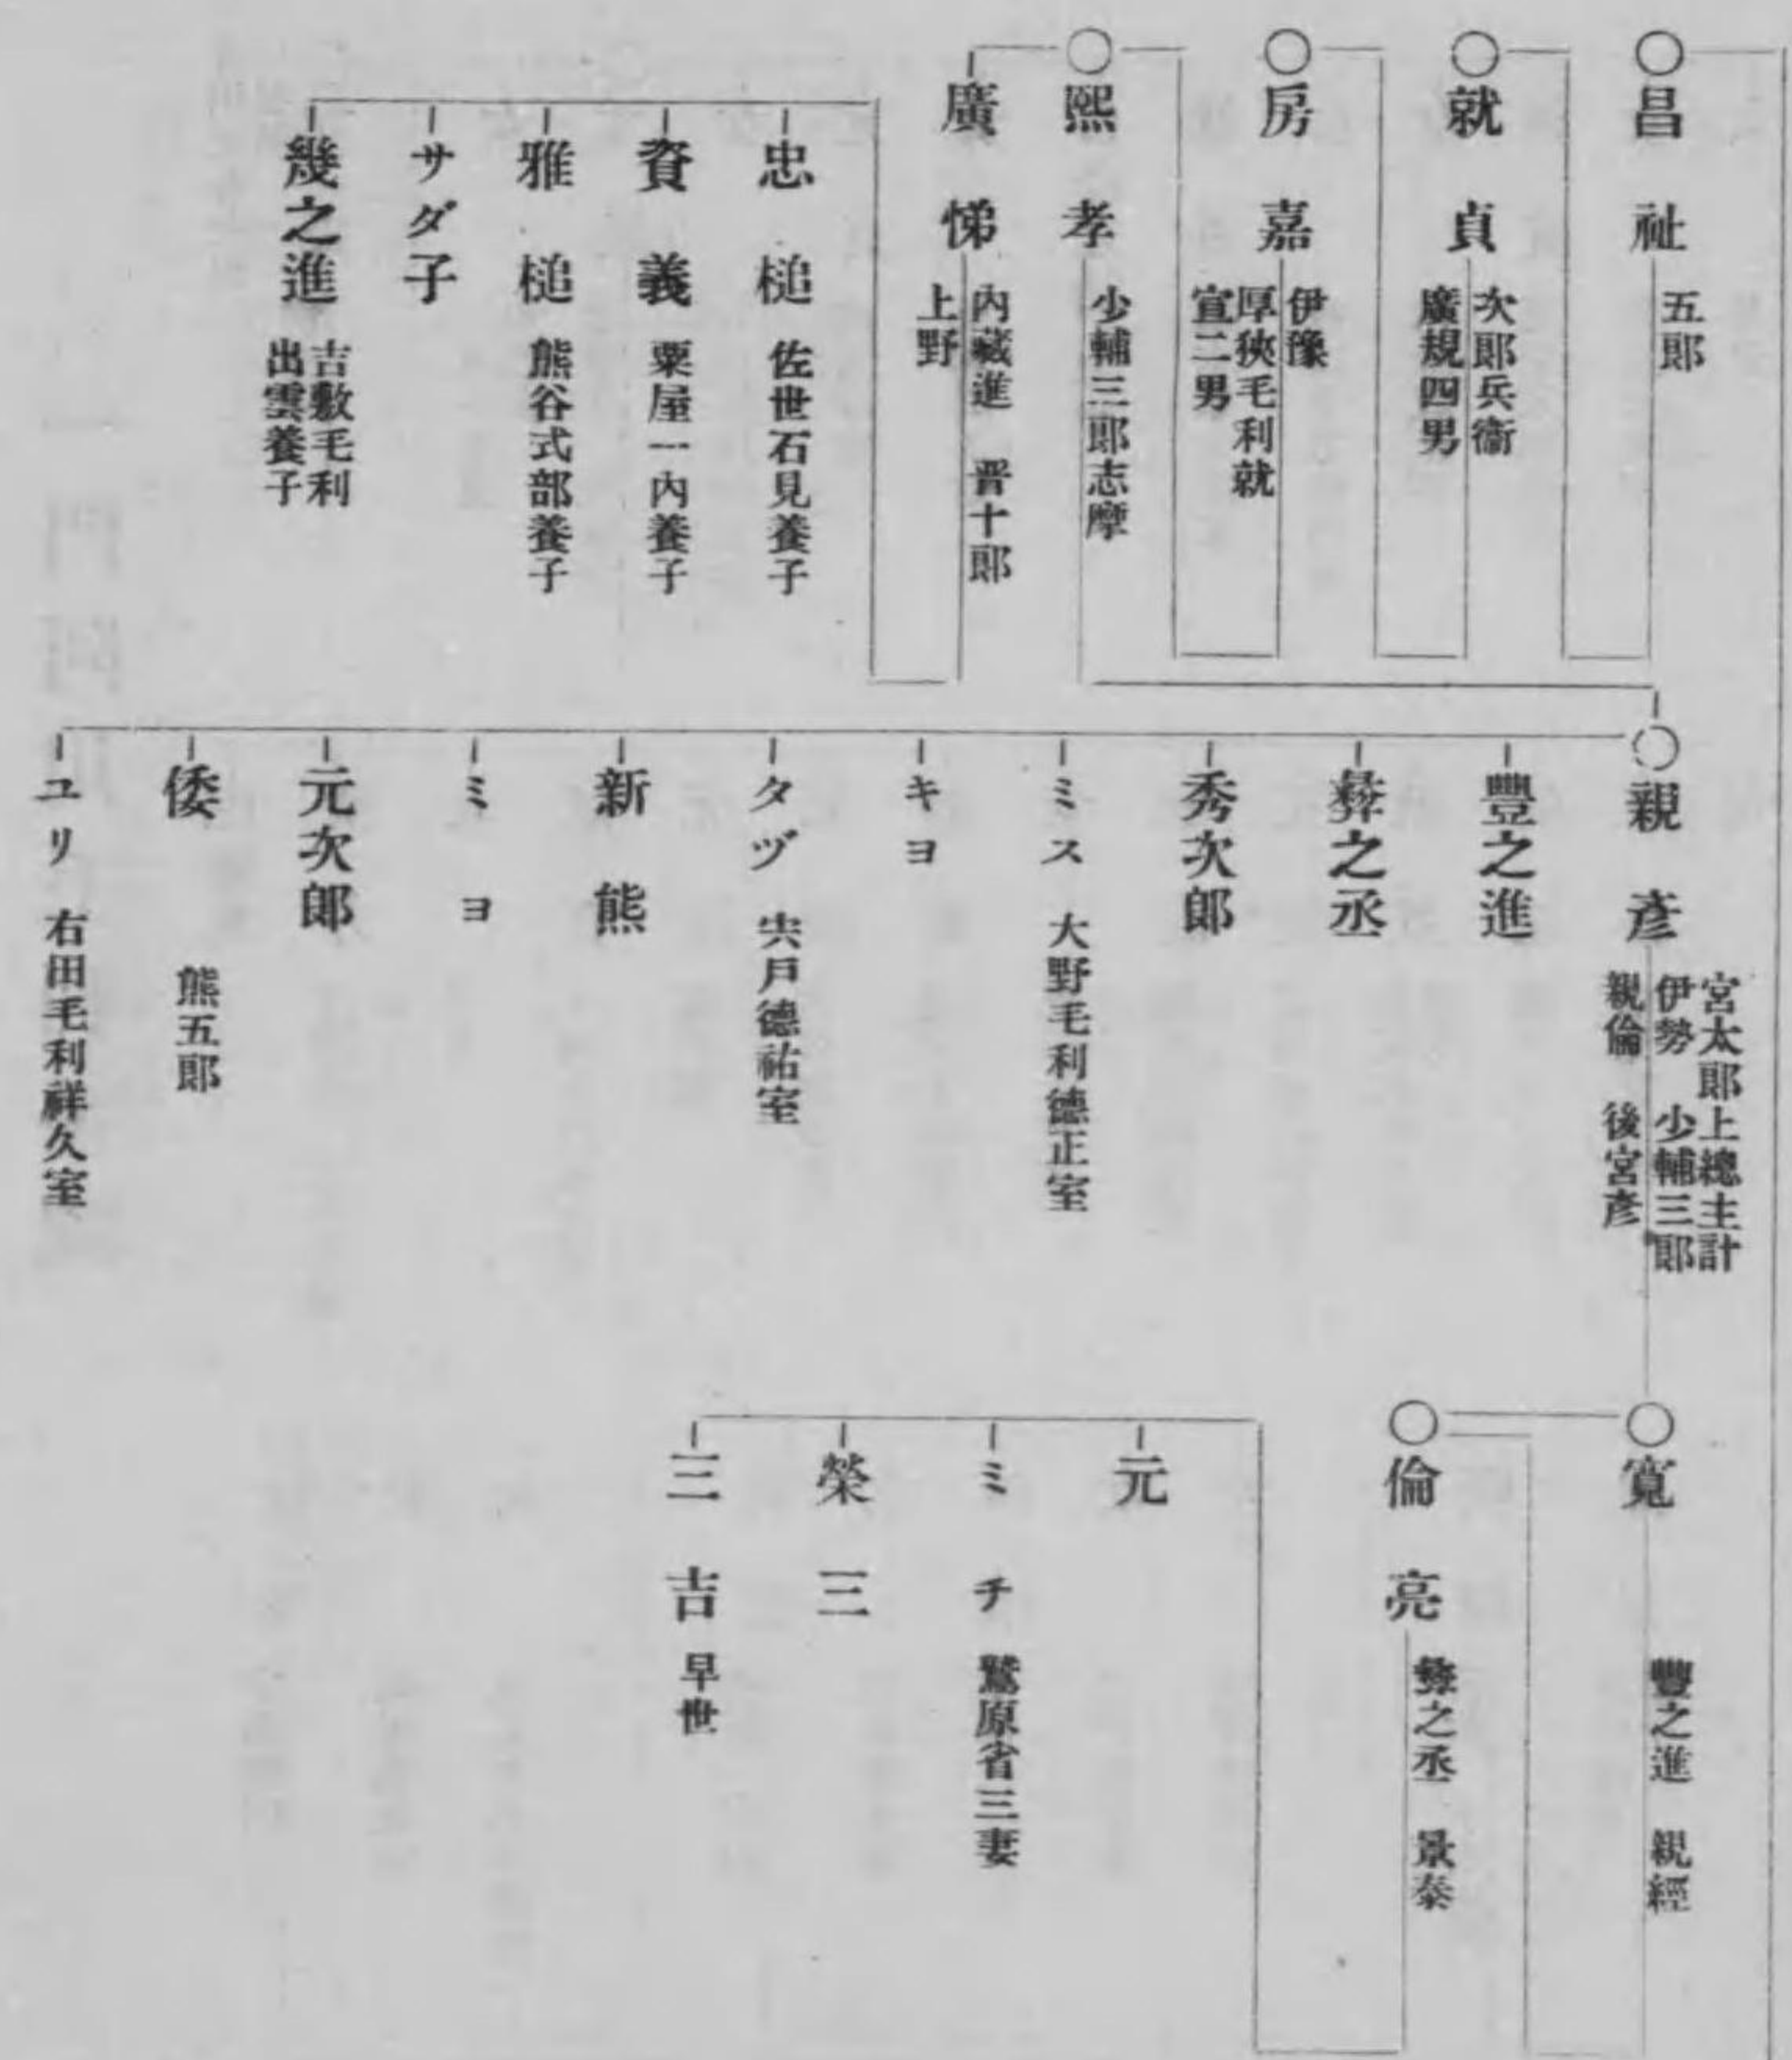 ○昌祉 五郎
○就貞 次郎兵衞
廣規四男
○房嘉 伊豫
厚狹毛利就
宣二男
○熙孝 少輔三郎志摩
廣悌 內藏進 晋十郎
上野
忠槌 佐世石見養子
資義 粟屋一內養子
雅槌 熊谷式部養子
サダ子
幾之進 吉敷毛利
出雲養子
○親彥 宮太郎上總主計
伊勢 少輔三郎
親倫 後宮彥
豐之進
彜之丞
秀次郎
ミス 大野毛利德正室
キヨ
タヅ 宍戶德祐室
新熊
ミヨ
元次郎
倭 熊五郎
ユリ 右田毛利祥久室
○寬 豐之進 親經
○倫亮 彜之丞 景泰
元
ミチ 鷲原省三妻
榮三
三吉 早世